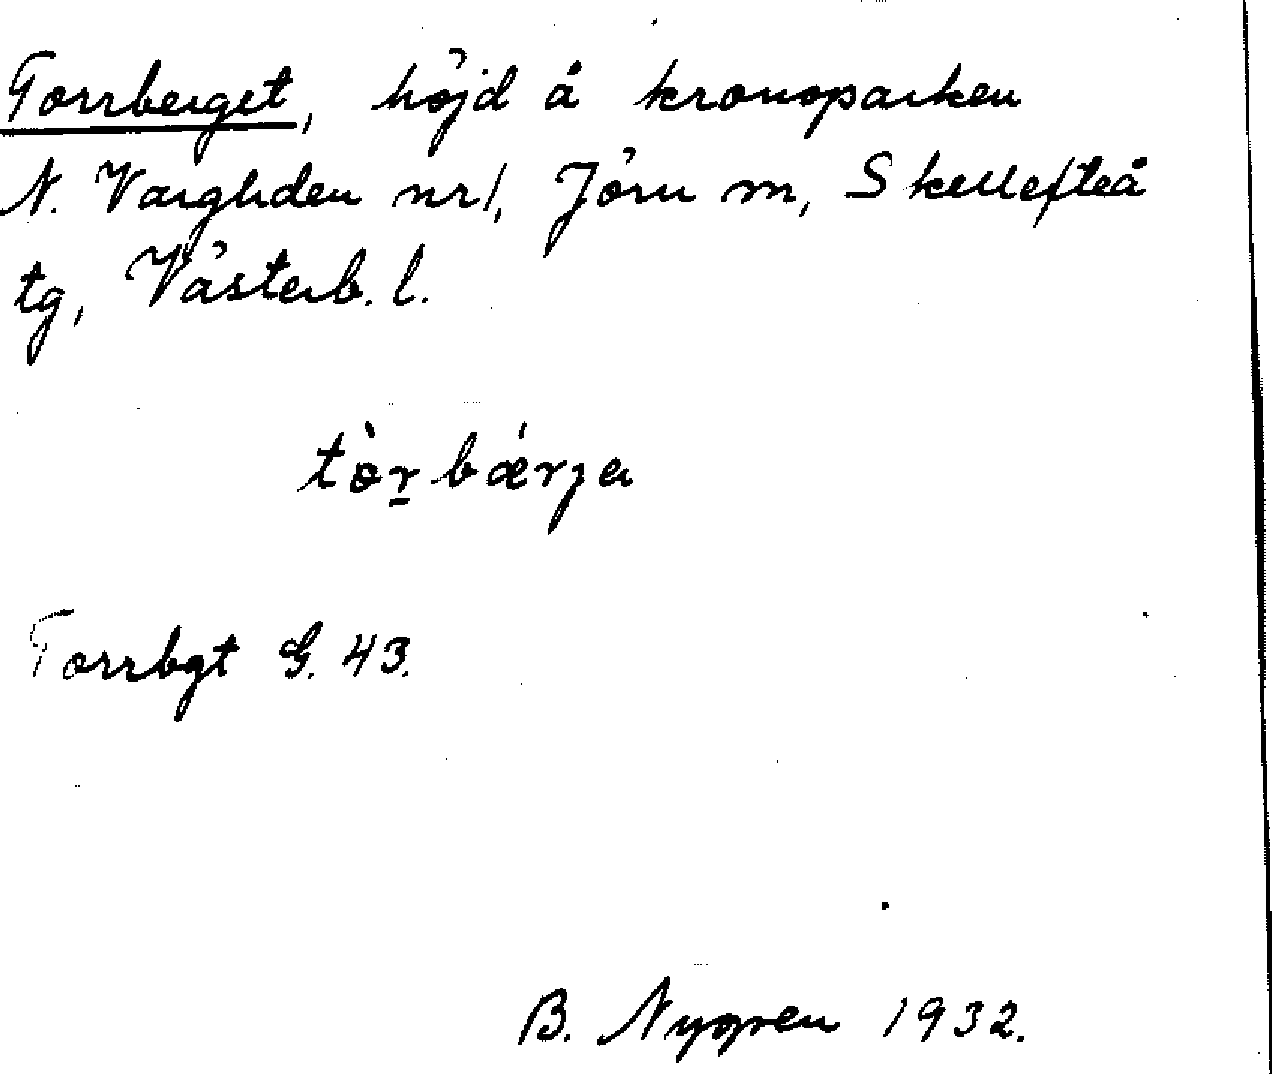 Torrberget, höjd å kronoparken
N. Vargliden nr 1, Jörn m, Skellefteå
tg, Västerb. l.
tòr̲bǽrja
Torrbgt G. 43.
B. Nygren 1932.